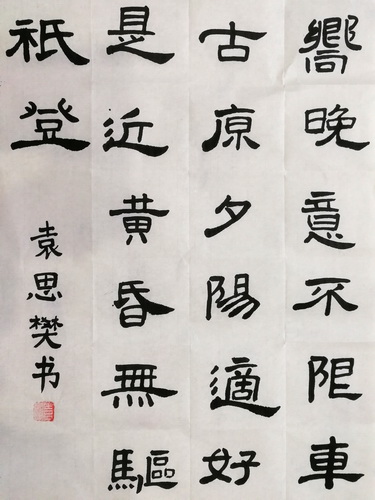 嚮晚意不限車
古原夕陽適好
是近黄昏無驅
祇登
袁思樊书